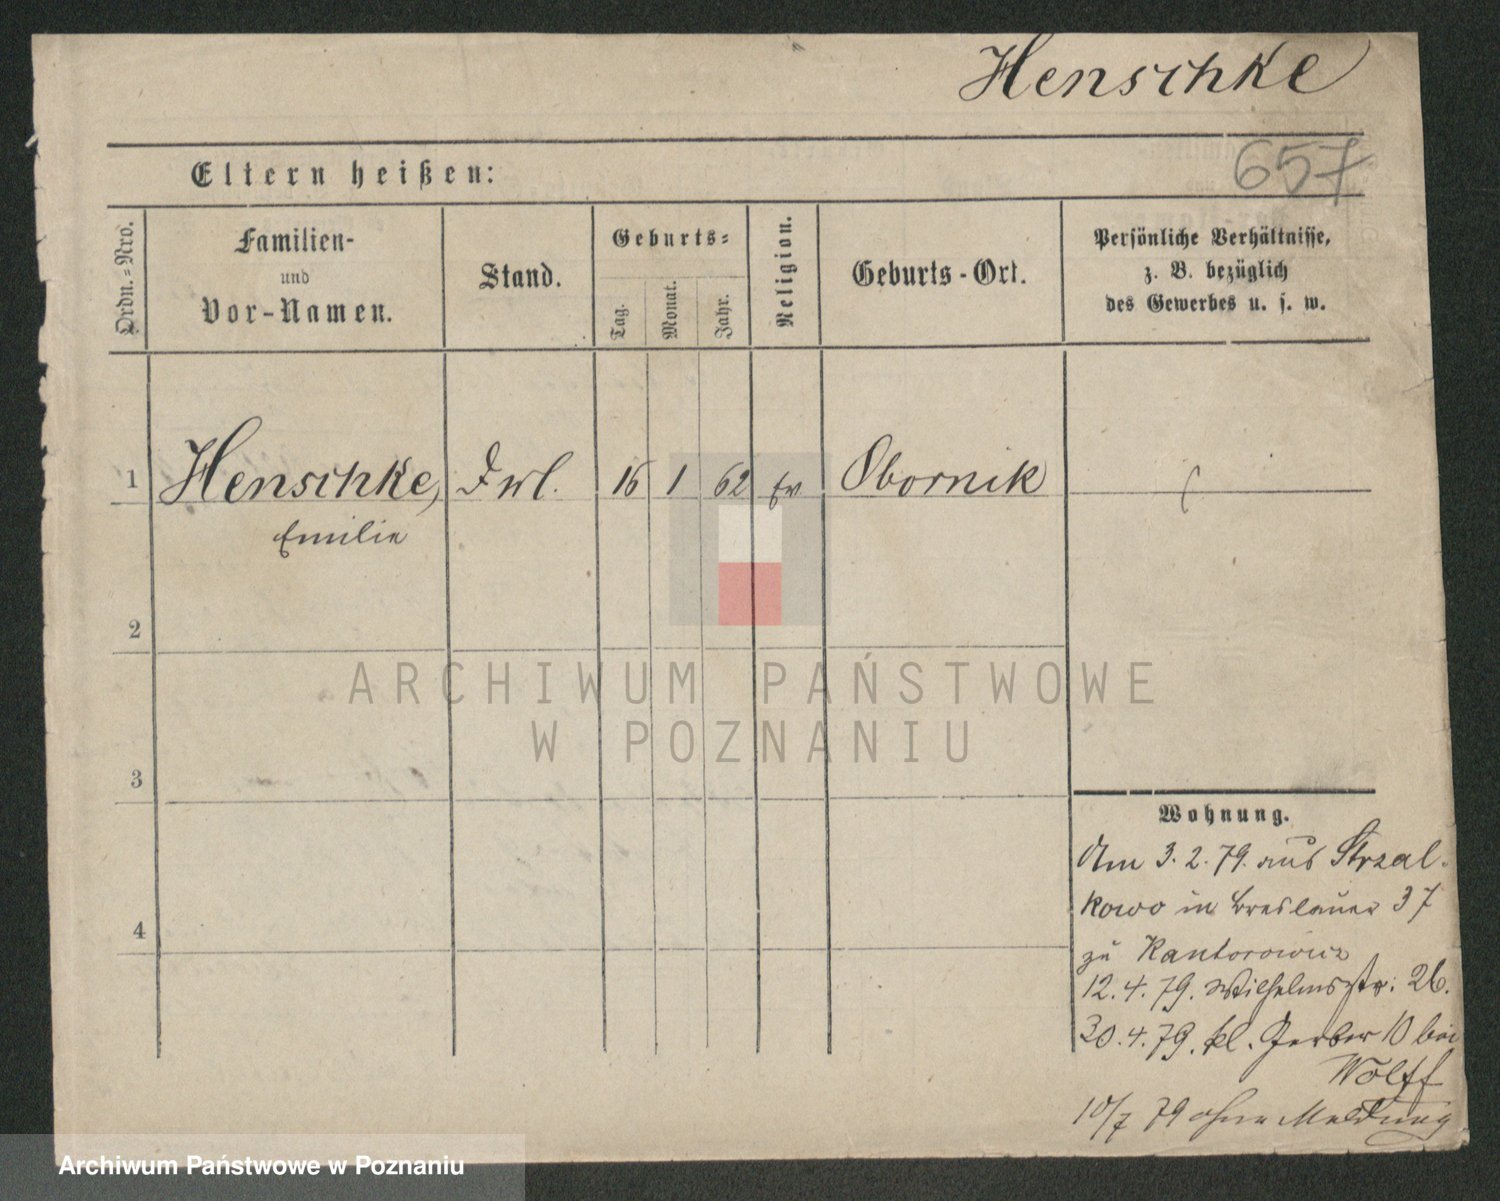 Henschke
657
Eltern heißen:
Ordn.-Nro.
Familien-
und
Vor-Namen.
Stand.
Geburts-
Tag.
Monat.
Jahr.
Religion.
Geburts-Ort.
Persönliche Verhältnisse,
z. B. bezüglich
des Gewerbes u. s. w.
1 Henschke, 16 1 62 Ev Obornik
Emilie
2
3
4
Wohnung.
Am 3.2.79. aus Strzal-
kowo in Breslauer 37
zu Kantorowicz
12.4.79. Wilhelmsstr: 26.
30.4.79. kl. Gerber 10 bei
Wolff
10/7 79 ohne Meldung
ARCHIWUM PAŃSTWOWE
W POZNANIU
Archiwum Państwowe w Poznaniu